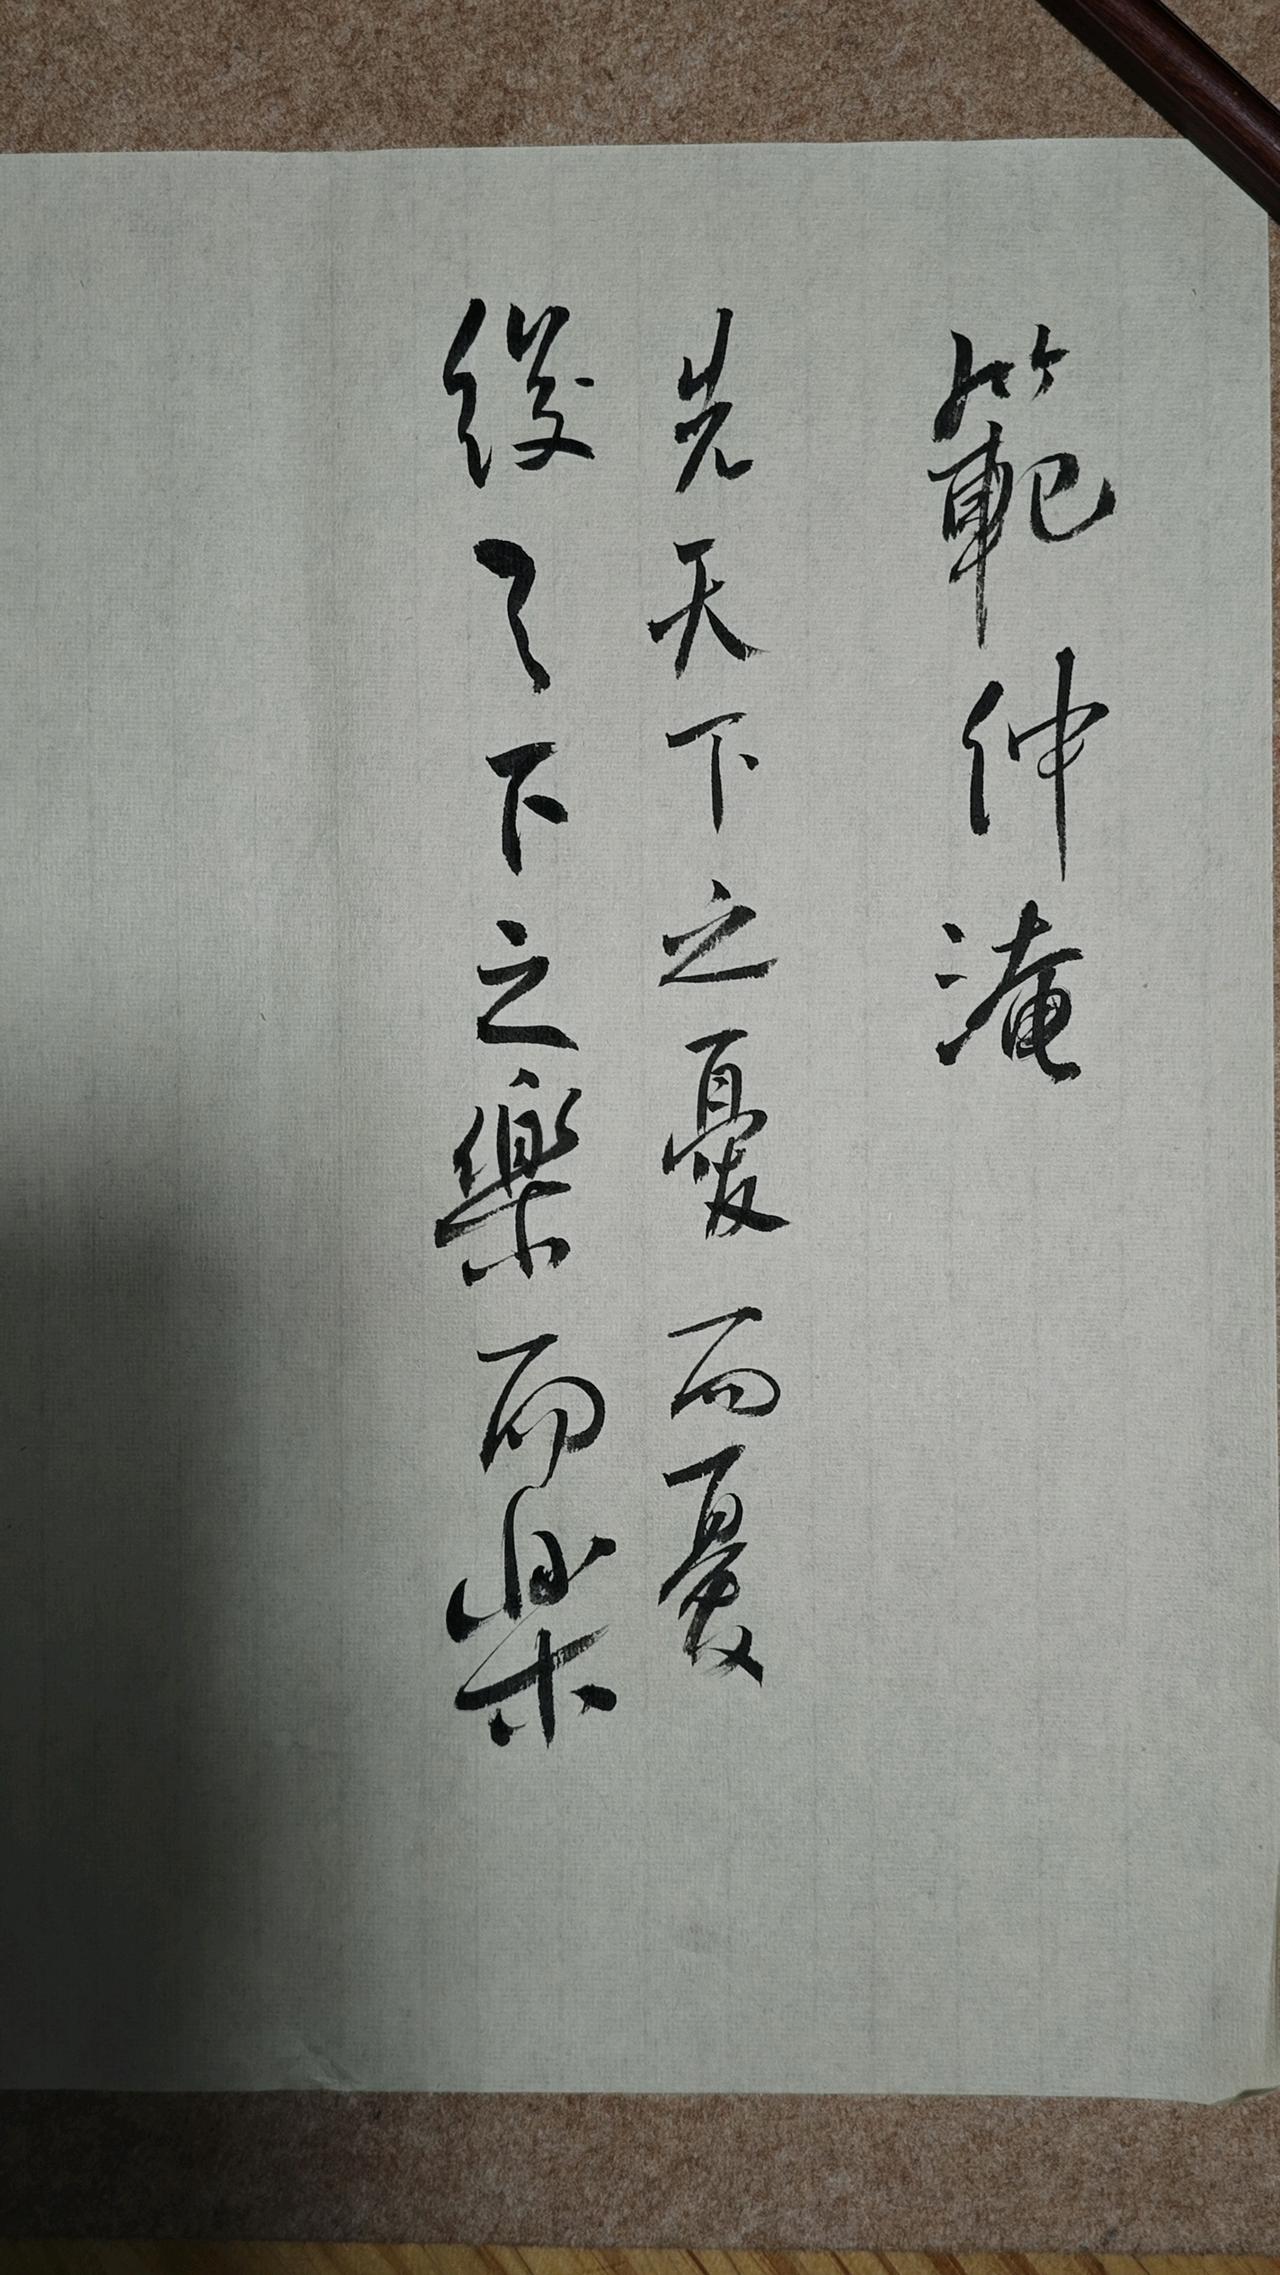 範仲淹
先天下之憂而憂
後天下之樂而樂